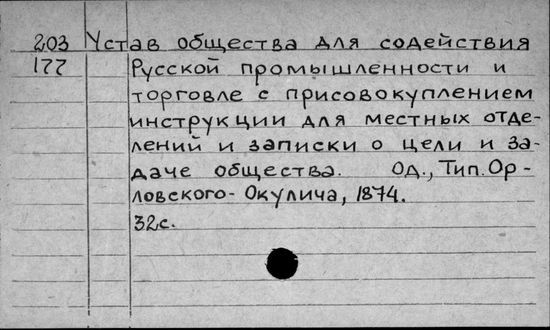 203 Устав общества для содействия
177 Русской промышленности и
торговле с присовокуплением
инструкции для местных отде-
лений и записки о цели и за-
даче общества. Од., Тип. Ор-
ловского-Окулича, 1874.
32с.